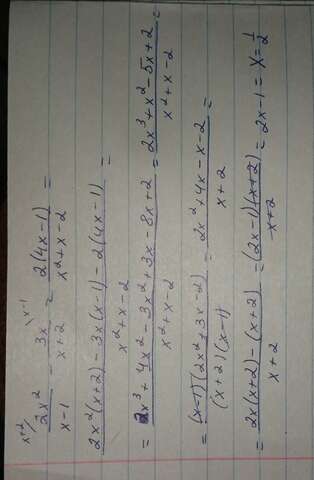 x+2/ \x-1
2x²/x-1 - 3x/x+2 = 2(4x-1)/x²+x-2 =
2x²(x+2)-3x(x-1)-2(4x-1)/x²+x-2 =
= 2x³+4x²-3x²+3x-8x+2/x²+x-2 = 2x³+x²-5x+2/x²+x-2 =
= (x-1)(2x²+3x-2)/(x+2)(x-1) = 2x²+4x-x-2/x+2 =
= 2x(x+2)-(x+2)/x+2 = (2x-1)(x+2)/x+2 = 2x-1 = x=1/2